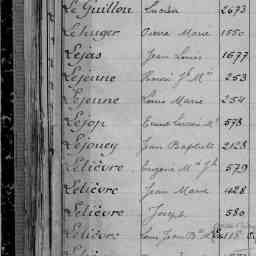 Le Guillou Lucien 2673
Lehuger Pierre Marie 1550
Lejas Jean Louis 1677
Lejeune 253
Lejeune Louis Marie 254
Lejop 573
Lejouey Jean Baptiste 2128
Lelièvre Eugène 579
Lelièvre Jean Marie 428
Lelièvre Joseph 580
Lelièvre Louis Jean